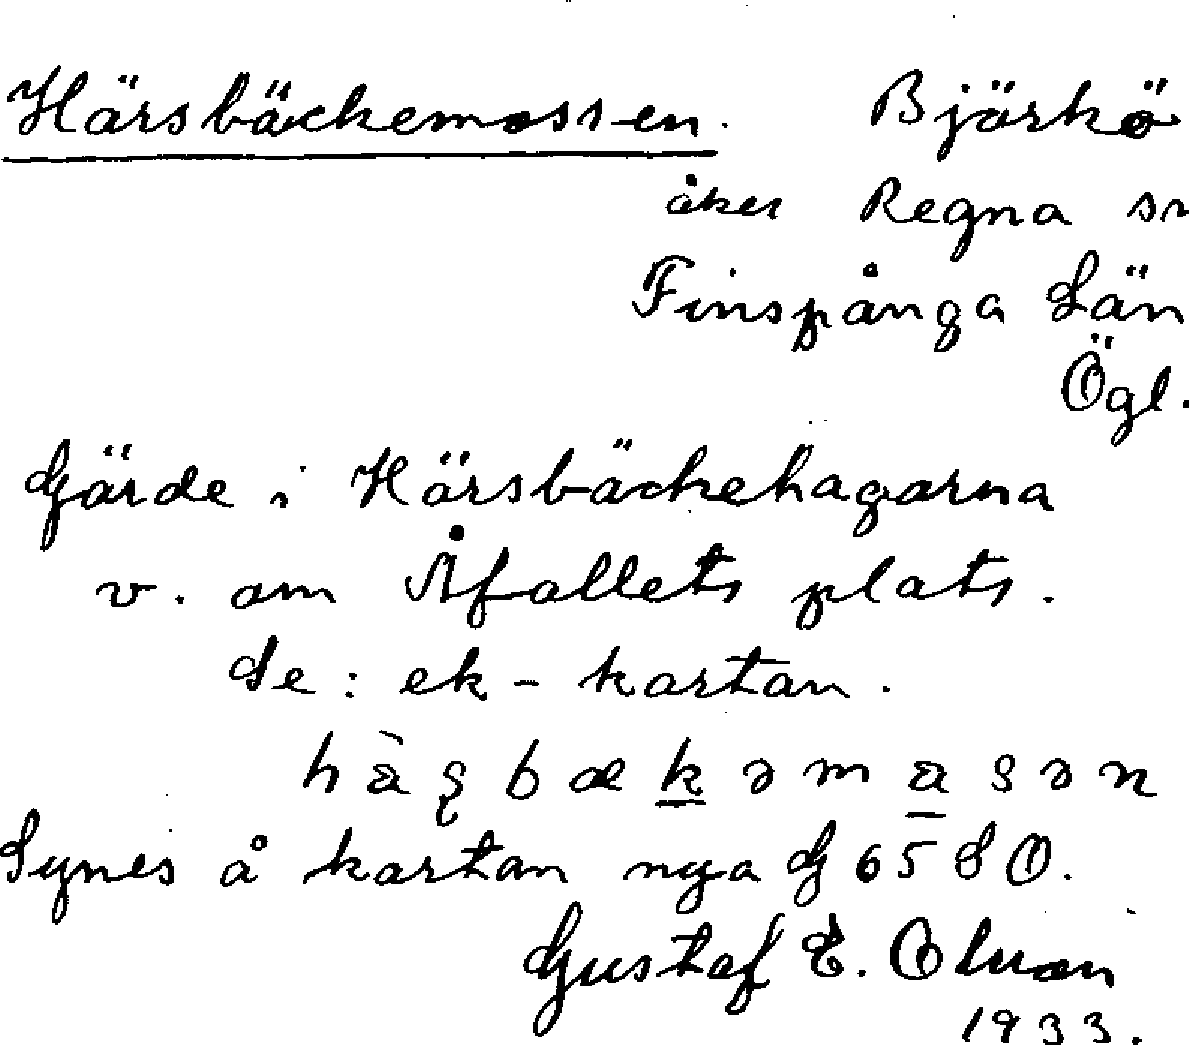 Härsbäckemossen. Björkö
åker Regna sn
Finspånga Län
Ögl.
Gärde i Härsbäckehagarna
v. om Åfallets plats.
Se: ek-kartan.
Synes å kartan nya G 65 SO.
Gustaf E.
1933.